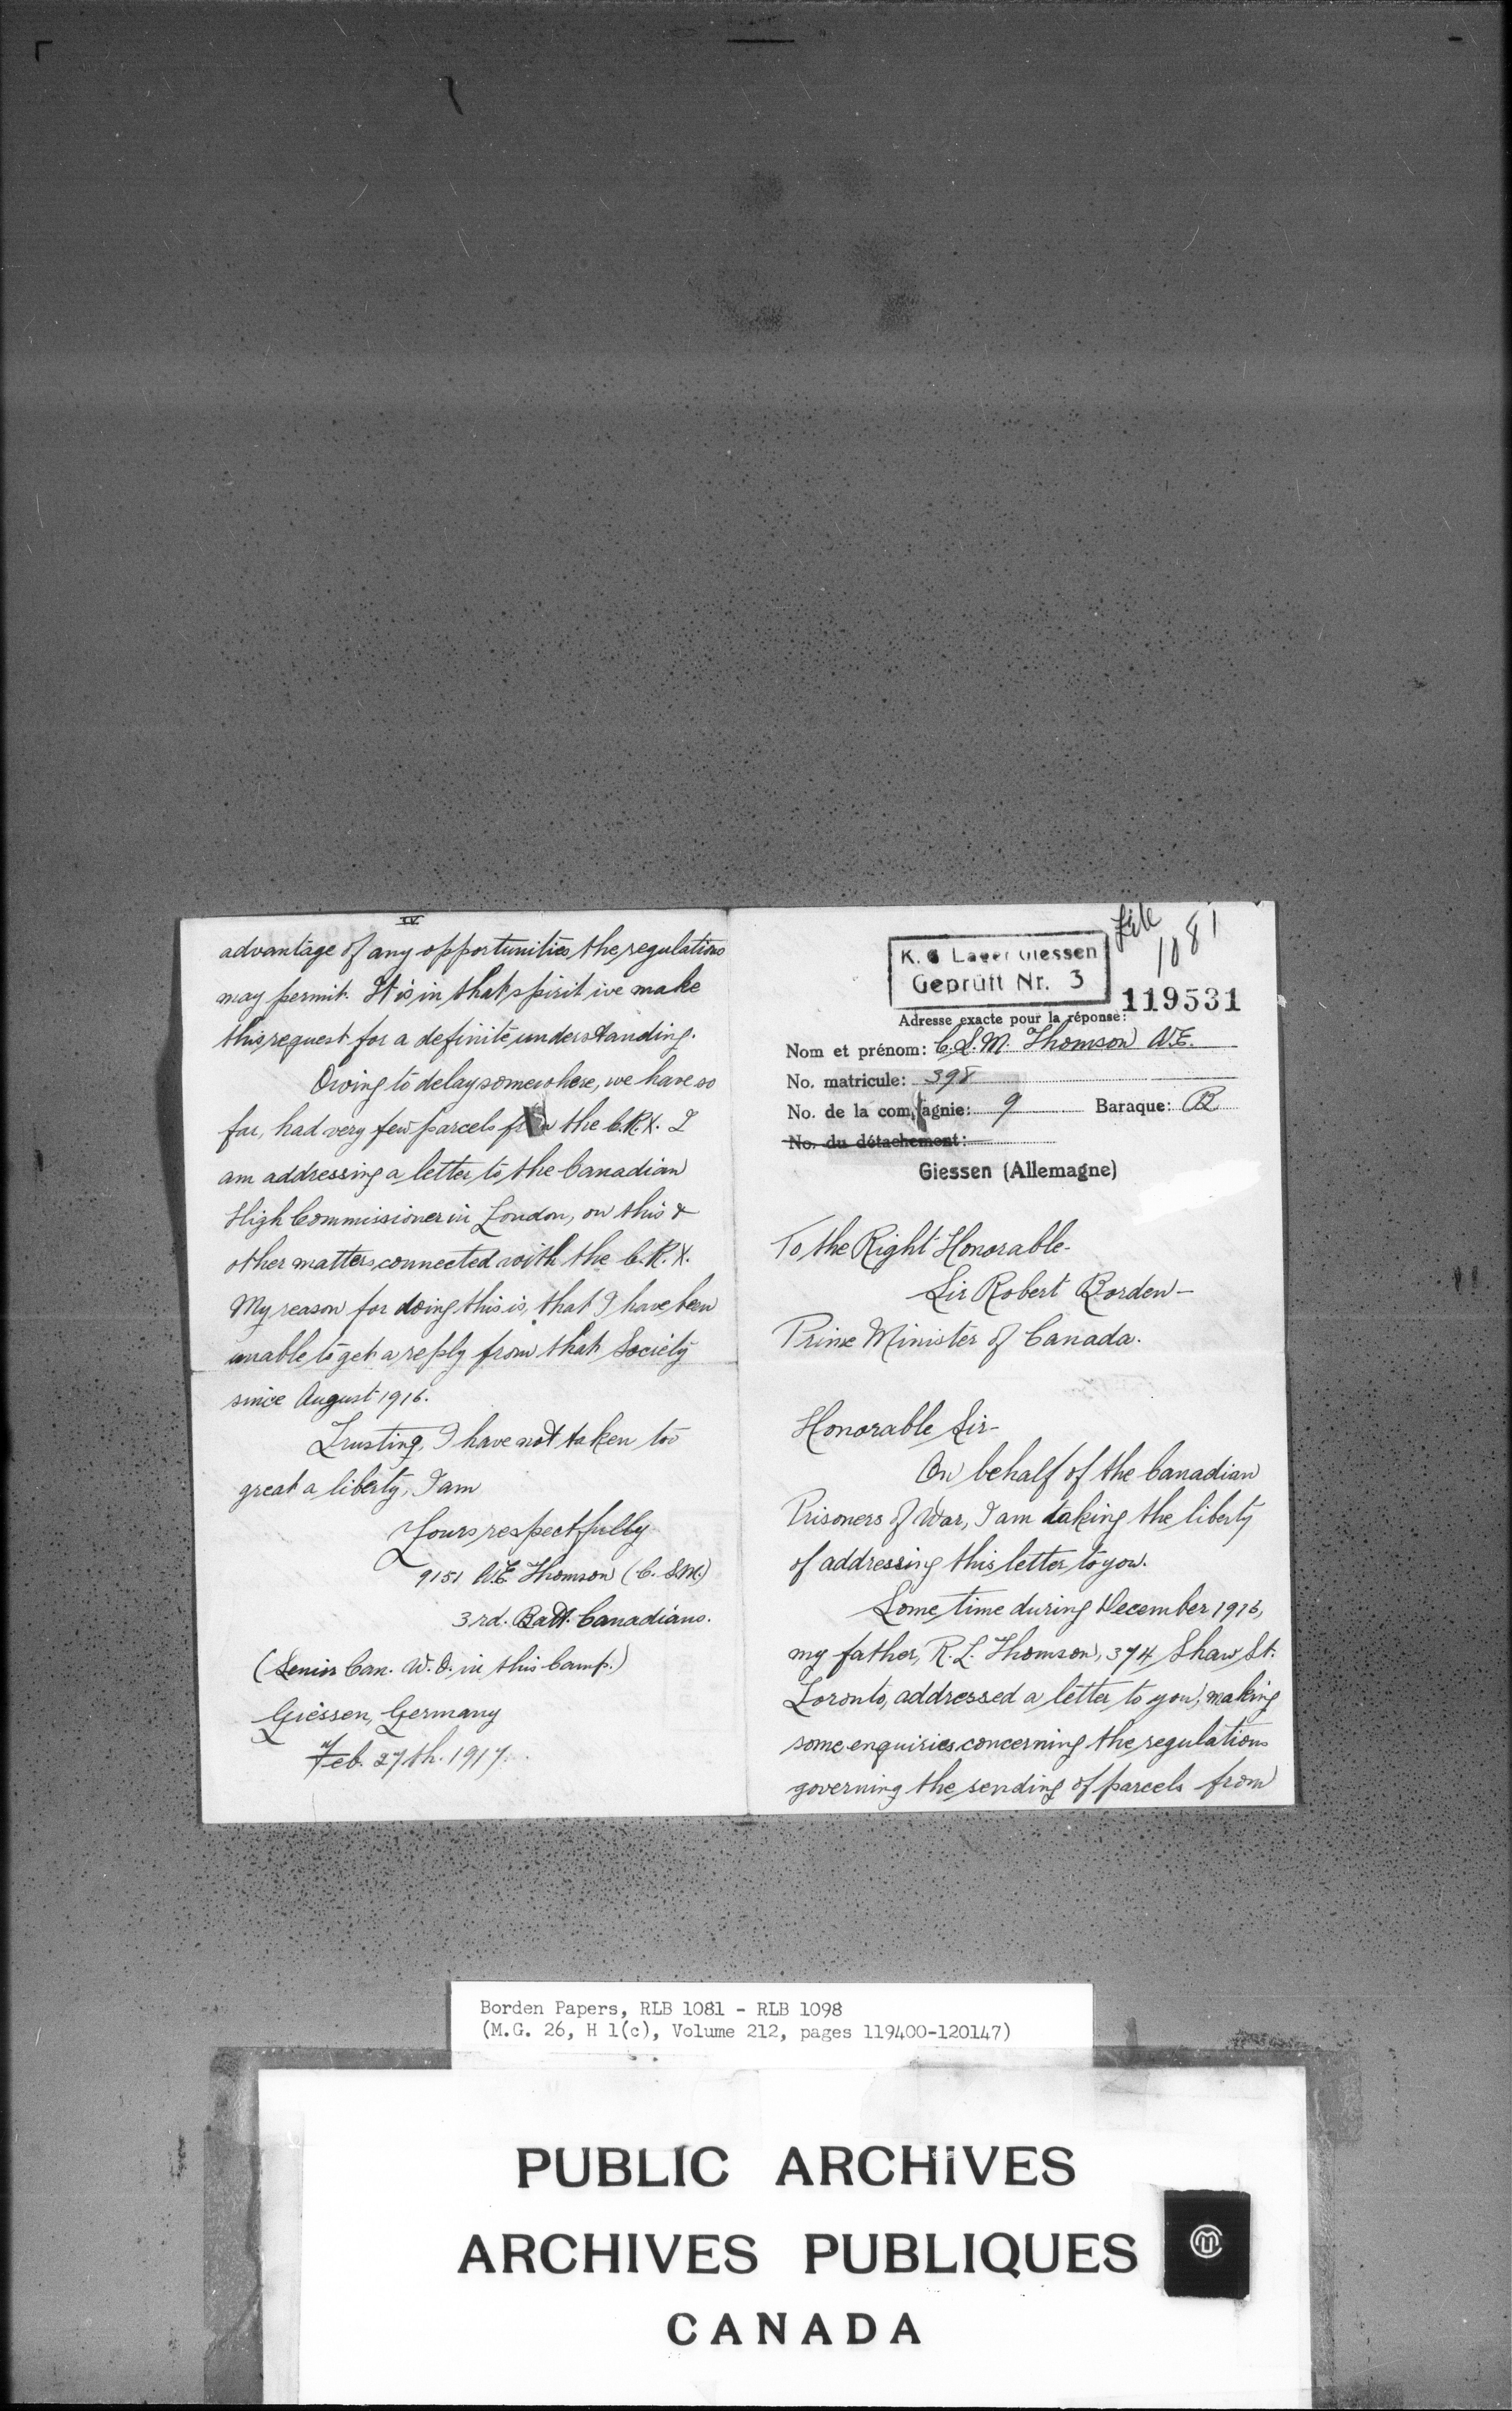 IV
advantage of any opportunities the regulations
may permit. It is in that spirit we make
this request for a definite understanding.
Owing to delay somewhere, we have so
far, had very few parcels from the C.R.X. I
am addressing a letter to the Canadian
High Commissioner in London, on this &
other matters connected with the C.R.X.
My reason for doing this is, that I have been
unable to get a reply from that Society
since August 1916.
Trusting, I have not taken too
great a liberty, I am
Yours respectfully
9151 W.E. Thomson (C.S.M.)
3rd. Batt. Canadians.
(Senior Can. W.O. in this Camp.)
Giessen, Germany
Feb. 27th. 1917.
File
1081
K. G Lager Giessen
Geprüft Nr. 3
119531
Adresse exacte pour la réponse:
Nom et prénom: C.S.M. Thomson W.E.
No. matricule: 398
No. de la compagnie: 9 Baraque: B
No. du détachement:
Giessen (Allemagne)
To the Right Honorable-
Sir Robert Borden-
Prime Minister of Canada.
Honorable Sir-
On behalf of the Canadian
Prisoners of War, I am taking the liberty
of addressing this letter to you.
Some time during December 1916,
my father, R. L. Thomson, 374 Shaw St.
Toronto, addressed a letter to you, making
some enquiries concerning the regulations
governing the sending of parcels from
Borden Papers, RLB 1081 - RLB 1098
(M.G. 26, H 1(c), Volume 212, pages 119400-120147)
PUBLIC ARCHIVES
ARCHIVES PUBLIQUES
CANADA